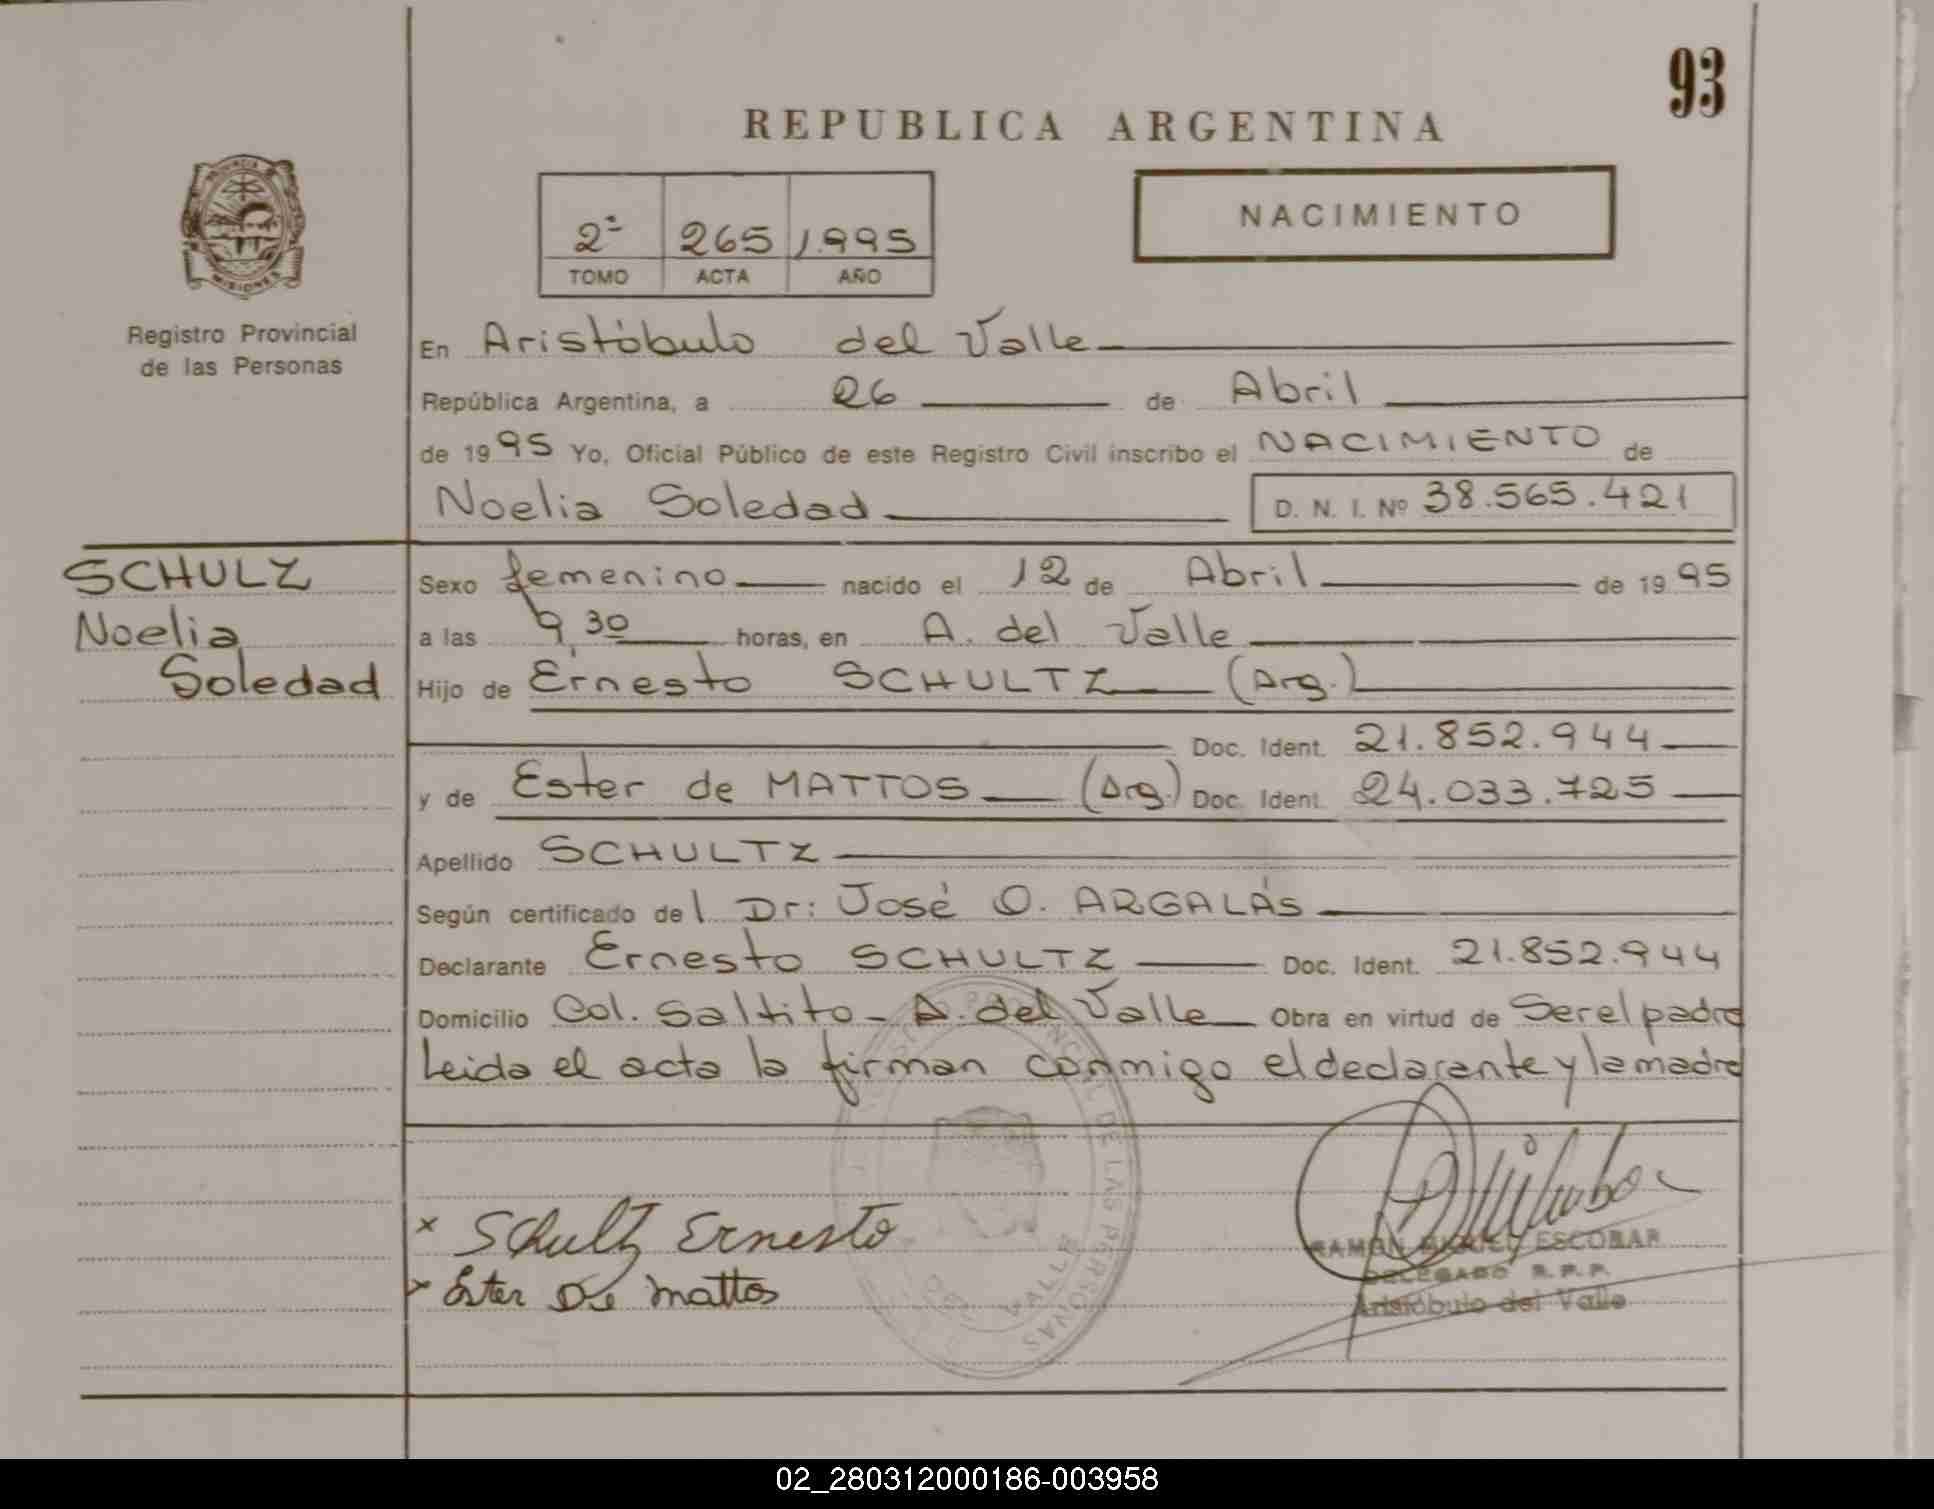 93
REPUBLICA ARGENTINA
NACIMIENTO
2º 265 1.995
TOMO ACTA AÑO
PROVINCIA DE
MISIONES
Registro Provincial
de las Personas
En Aristóbulo del Valle
República Argentina, a 26 de Abril
de 1995 Yo, Oficial Público de este Registro Civil inscribo el NACIMIENTO de
Noelia Soledad D. N. I. Nº 38.565.421
SCHULZ
Noelia
Soledad
Sexo femenino nacido el 12 de Abril de 1995
a las 9,30 horas, en A. del Valle
Hijo de Ernesto SCHULTZ (Arg.)
Doc. Ident. 21.852.944
y de Ester de MATTOS (Arg.) Doc. Ident. 24.033.725
Apellido SCHULTZ
Según certificado del Dr: José O. ARGALÁS
Declarante Ernesto SCHULTZ Doc. Ident. 21.852.944
Domicilio Col. Saltito - A. del Valle Obra en virtud de Ser el padre
Leida el acta la firman conmigo el declarante y la madre
x Schultz Ernesto
x Ester De Mattos
RAMON MIGUEL ESCOBAR
DELEGADO R.P.P.
Aristóbulo del Valle
PROVINCIAL DE LAS PERSONAS
VALLE
02_280312000186-003958